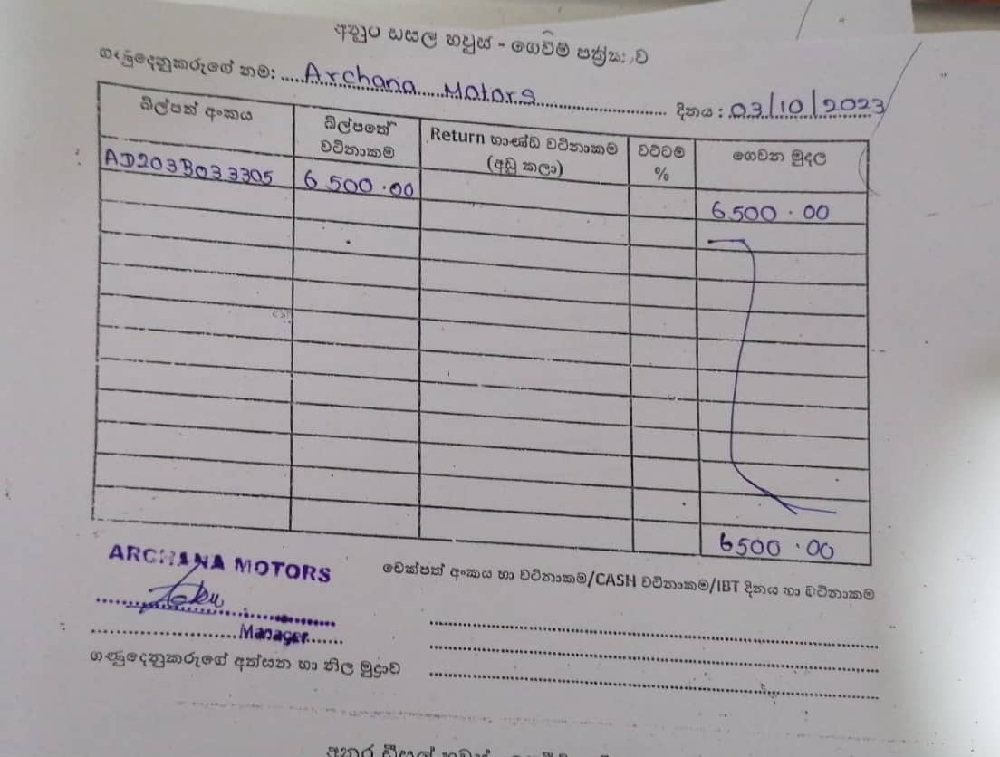 අනුර ඩීසල් හවුස් - ගෙවීම් පත්‍රිකාව
ගණුදෙනුකරුගේ නම: Archana Motors දිනය: 03/10/2023
බිල්පත් අංකය බිල්පතේ වටිනාකම Return භාණ්ඩ වටිනාකම (අඩු කලා) වට්ටම % ගෙවන මුදල
AD203B033305 6 500.00 6500.00
6500.00
ARCHANA MOTORS
චෙක්පත් අංකය හා වටිනාකම/CASH වටිනාකම/IBT දිනය හා වටිනාකම
Manager
ගණුදෙනුකරුගේ අත්සන හා නිල මුද්‍රාව